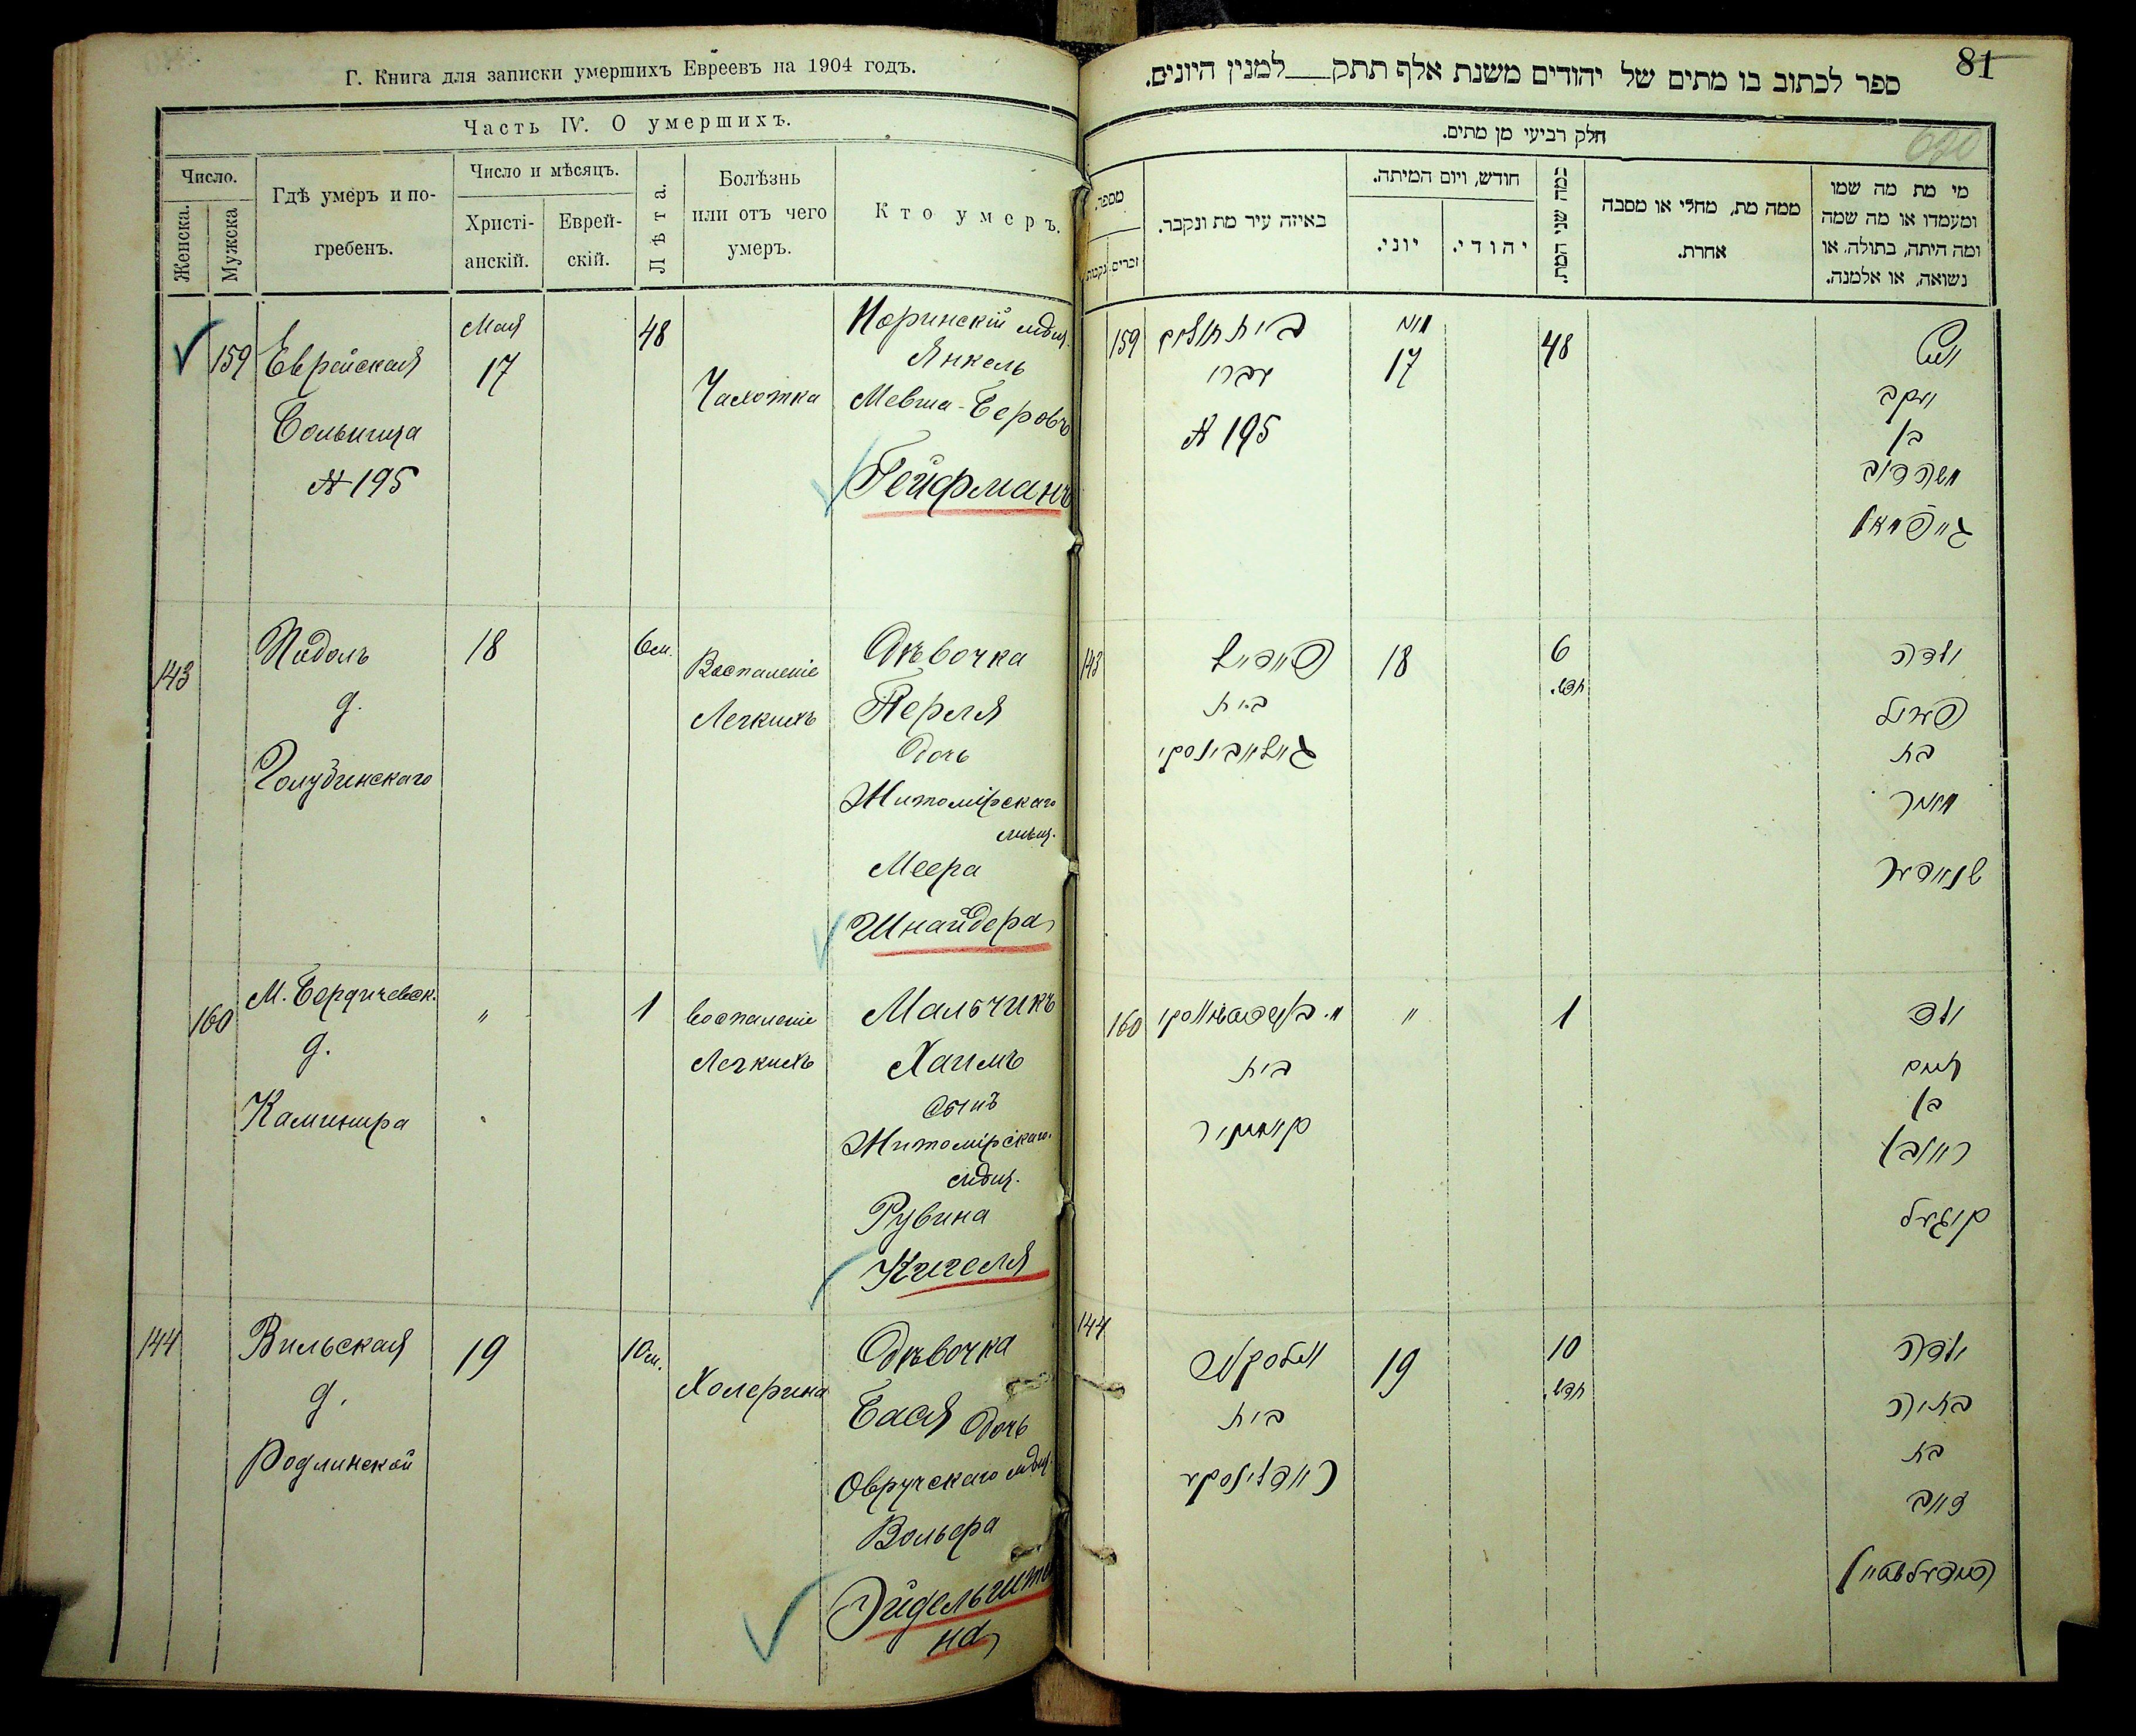 Г. Книга для записки умершихъ Евреевъ на 1904 годъ.
Часть IV. О умершихъ.
Число.
Женска.
Мужска
Гдѣ умеръ и по-
гребенъ.
Число и мѣсяцъ.
Христі-
анскій.
Еврей-
скій.
Лѣта.
Болѣзнь
или отъ чего
умеръ.
Кто умеръ.
159
Еврейская
Больница
№ 195
Мая
17
48
Чахотка
Норинскій мѣщ.
Янкель
Мевша-Беровъ
Гейфманъ
143
Подолъ
д.
Голубинскаго
18
6 м.
Воспаленіе
Легкихъ
Дѣвочка
Перля
Дочь
Житомірскаго
мѣщ.
Меера
Шнайдера
160
М. Бердичевск.
д.
Каминира
"
1
Воспаленіе
Легкихъ
Мальчикъ
Хаимъ
сынъ
Житомірскаго
мѣщ.
Рувина
Кигеля
144
Вильская
д.
Родлинской
19
10 м.
Холерина
Дѣвочка
Бася Дочь
Овручскаго мѣщ.
Вольера
Эйдельштей
на
81
ספר לכתוב בו מתים של יהודים משנת אלף תתק___למנין היונים.
חלק רביעי מן מתים.
מספר.
נקבות
זכרים
באיזה עיר מת ונקבר.
חודש, ויום המיתה.
יוני.
יהודי.
כמה שני המת.
ממה מת, מחלי או מסבה
אחרת.
מי מת מה שמו
ומעמדו או מה שמה
ומה היתה, בתולה, או
נשואה, או אלמנה.
159
בית חולים
עברי
№ 195
מאי
17
48
איש
יעקב
בן
משה דוב
גייפמאן
143
פאדיל
בית
גאלובינסקי
18
6
חדש.
ילדה
פערל
בת
מאיר
שניידער
160
מ. בערדיטשובסקי
בית
קאמיניר
"
1
ילד
חיים
בן
ראובן
קיגעל
144
ווילסקא
בית
ראדלינסקי
19
10
חדש.
ילדה
בתיה
בת
זאב
איידעלשטיין